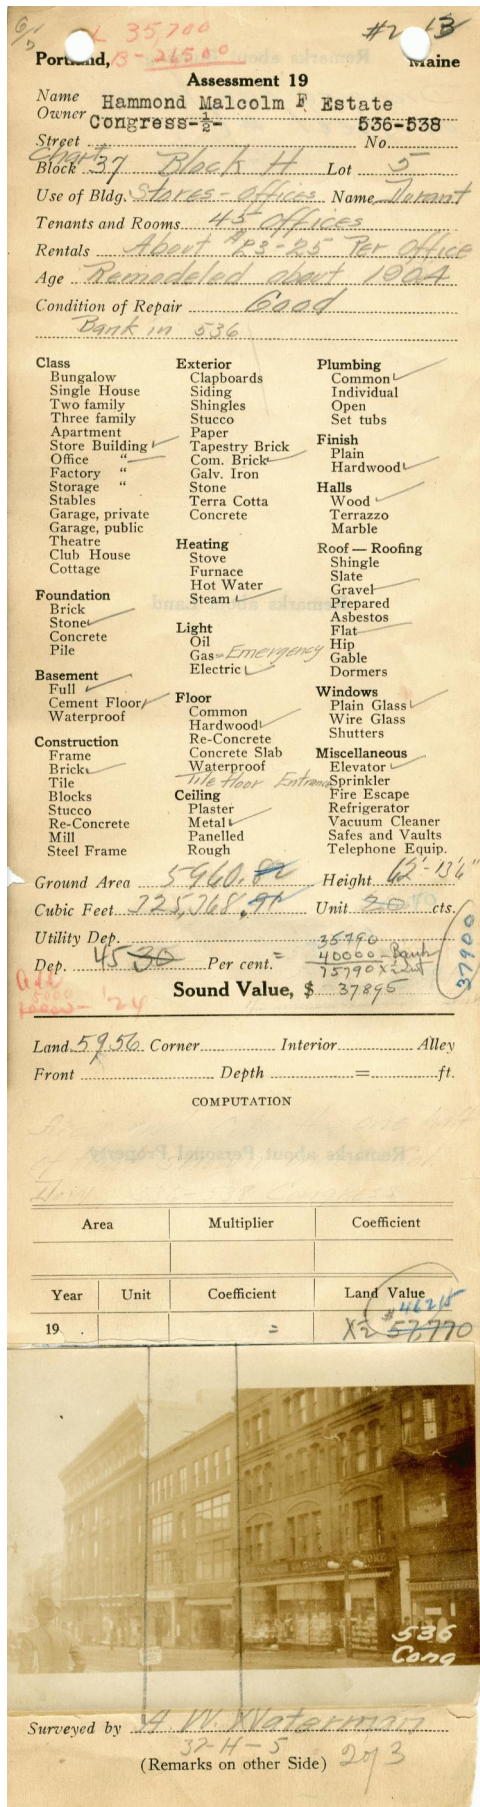 6/5 L 35,700 #2 13
Portland, B-26500 Maine
Assessment 19
Name Hammond Malcolm F Estate
Owner Congress-½- 536-538
Street No.
Chart
Block 37 Block H Lot 5
Use of Bldg. Stores-offices Name Durant
Tenants and Rooms 45 offices
Rentals About $23-25 Per office
Age Remodeled about 1904
Condition of Repair Good
Bank in 536
Class
Bungalow
Single House
Two family
Three family
Apartment
Store Building ✓
Office " ✓
Factory "
Storage "
Stables
Garage, private
Garage, public
Theatre
Club House
Cottage
Foundation
Brick
Stone ✓
Concrete
Pile
Basement
Full ✓
Cement Floor ✓
Waterproof
Construction
Frame
Brick ✓
Tile
Blocks
Stucco
Re-Concrete
Mill
Steel Frame
Exterior
Clapboards
Siding
Shingles
Stucco
Paper
Tapestry Brick
Com. Brick ✓
Galv. Iron
Stone
Terra Cotta
Concrete
Heating
Stove
Furnace
Hot Water
Steam ✓
Light
Oil
Gas - Emergency
Electric ✓
Floor
Common
Hardwood ✓
Re-Concrete
Concrete Slab
Waterproof
Tile floor Entrance
Ceiling
Plaster
Metal ✓
Panelled
Rough
Plumbing
Common ✓
Individual
Open
Set tubs
Finish
Plain
Hardwood ✓
Halls
Wood ✓
Terrazzo
Marble
Roof — Roofing
Shingle
Slate
Gravel ✓
Prepared
Asbestos
Flat ✓
Hip
Gable
Dormers
Windows
Plain Glass ✓
Wire Glass
Shutters
Miscellaneous
Elevator ✓
Sprinkler
Fire Escape
Refrigerator
Vacuum Cleaner
Safes and Vaults
Telephone Equip.
Ground Area 5960.82 Height 62'-13'6"
Cubic Feet 325,368 Unit 20 cts.
Utility Dep. 35790
40000-Bank
Dep. 45 30 Per cent. = 75790
37900
Sound Value, $ 37895
add
5000
10000 - '24
Land 5956 Corner Interior Alley
Front Depth = ft.
COMPUTATION
Area Multiplier Coefficient
Year Unit Coefficient Land Value
$46215
19 . = 57,770
536
Cong
Surveyed by A. W. Waterman
37-H-5
(Remarks on other Side) 2 of 3